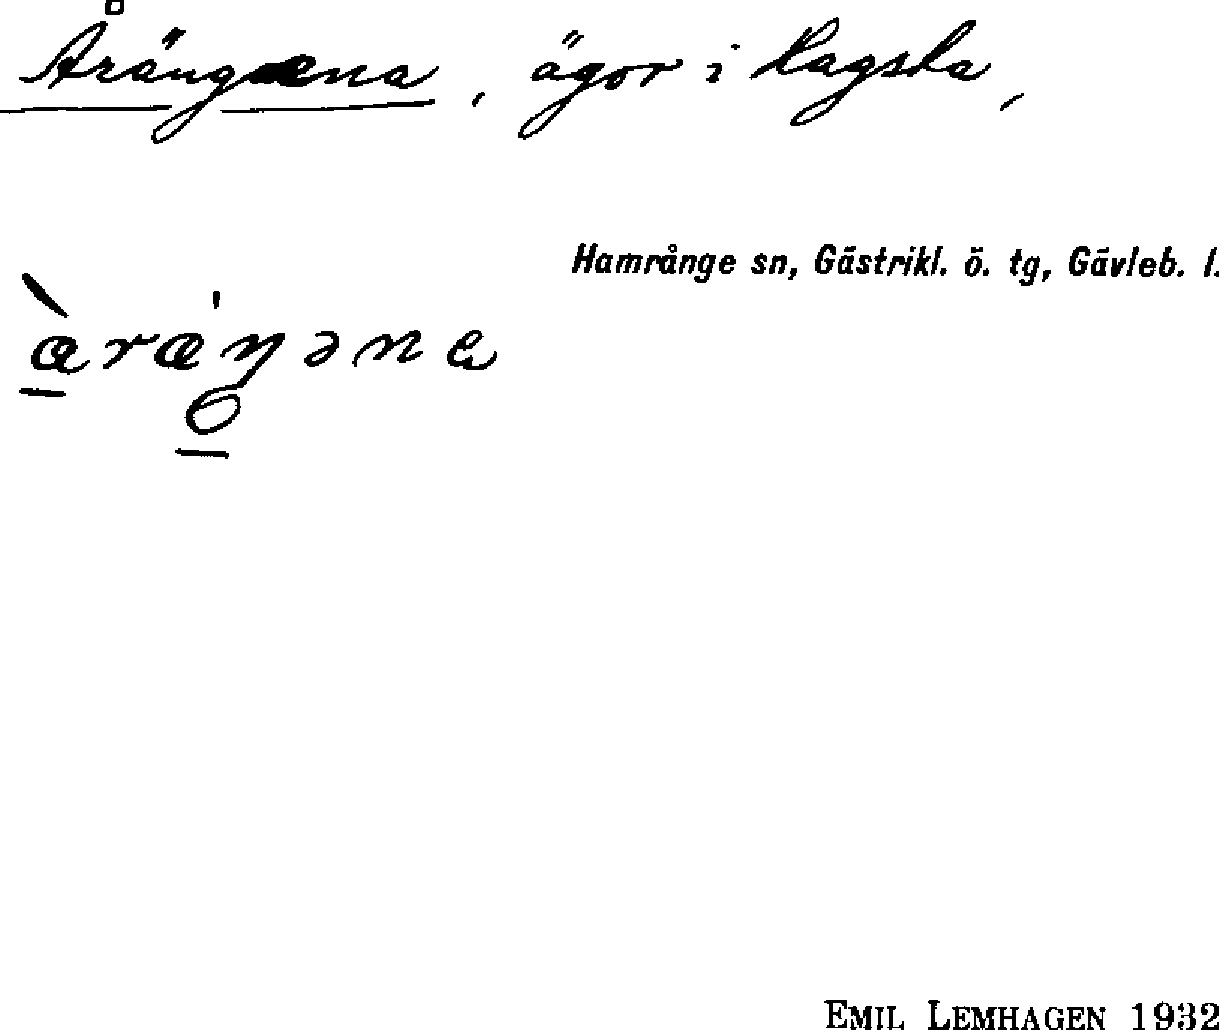 Årängena, ägor i Hagsta,
Hamrånge sn, Gästrikl. ö. tg, Gävleb. l.
EMIL LEMHAGEN 1932